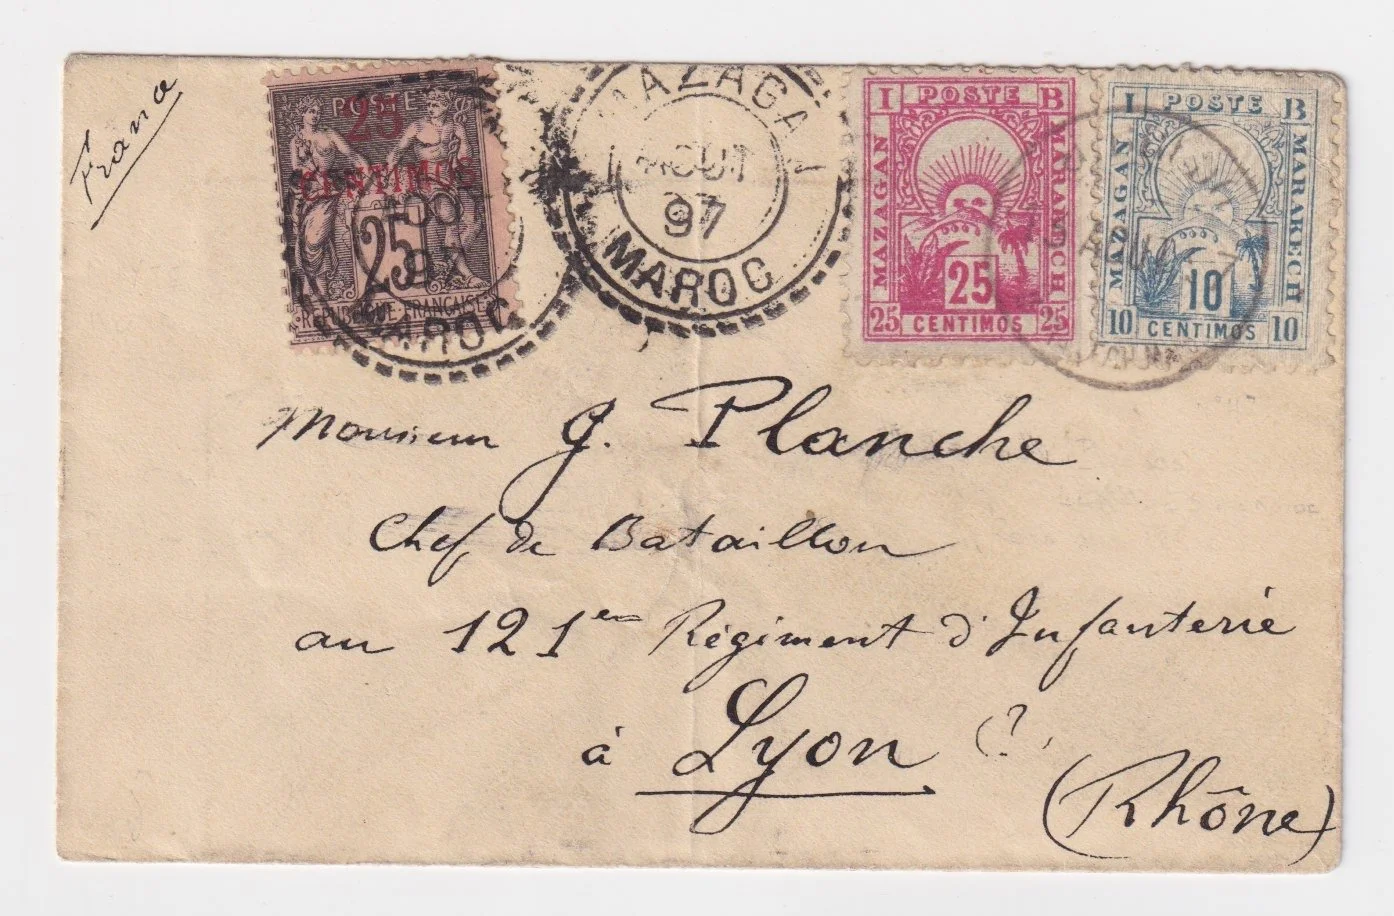 France
POSTE
25
CENTIMOS
25
REPUBLIQUE FRANÇAISE
97
MAROC
MAZAGAN
AOUT
97
MAROC
I POSTE B
MAZAGAN
MARAKECH
25
25 CENTIMOS 25
I POSTE B
MAZAGAN
MARAKECH
10
10 CENTIMOS 10
Monsieur J. Planche
Chef de Bataillon
au 121em Régiment d'Infanterie
à Lyon (?)
(Rhône)